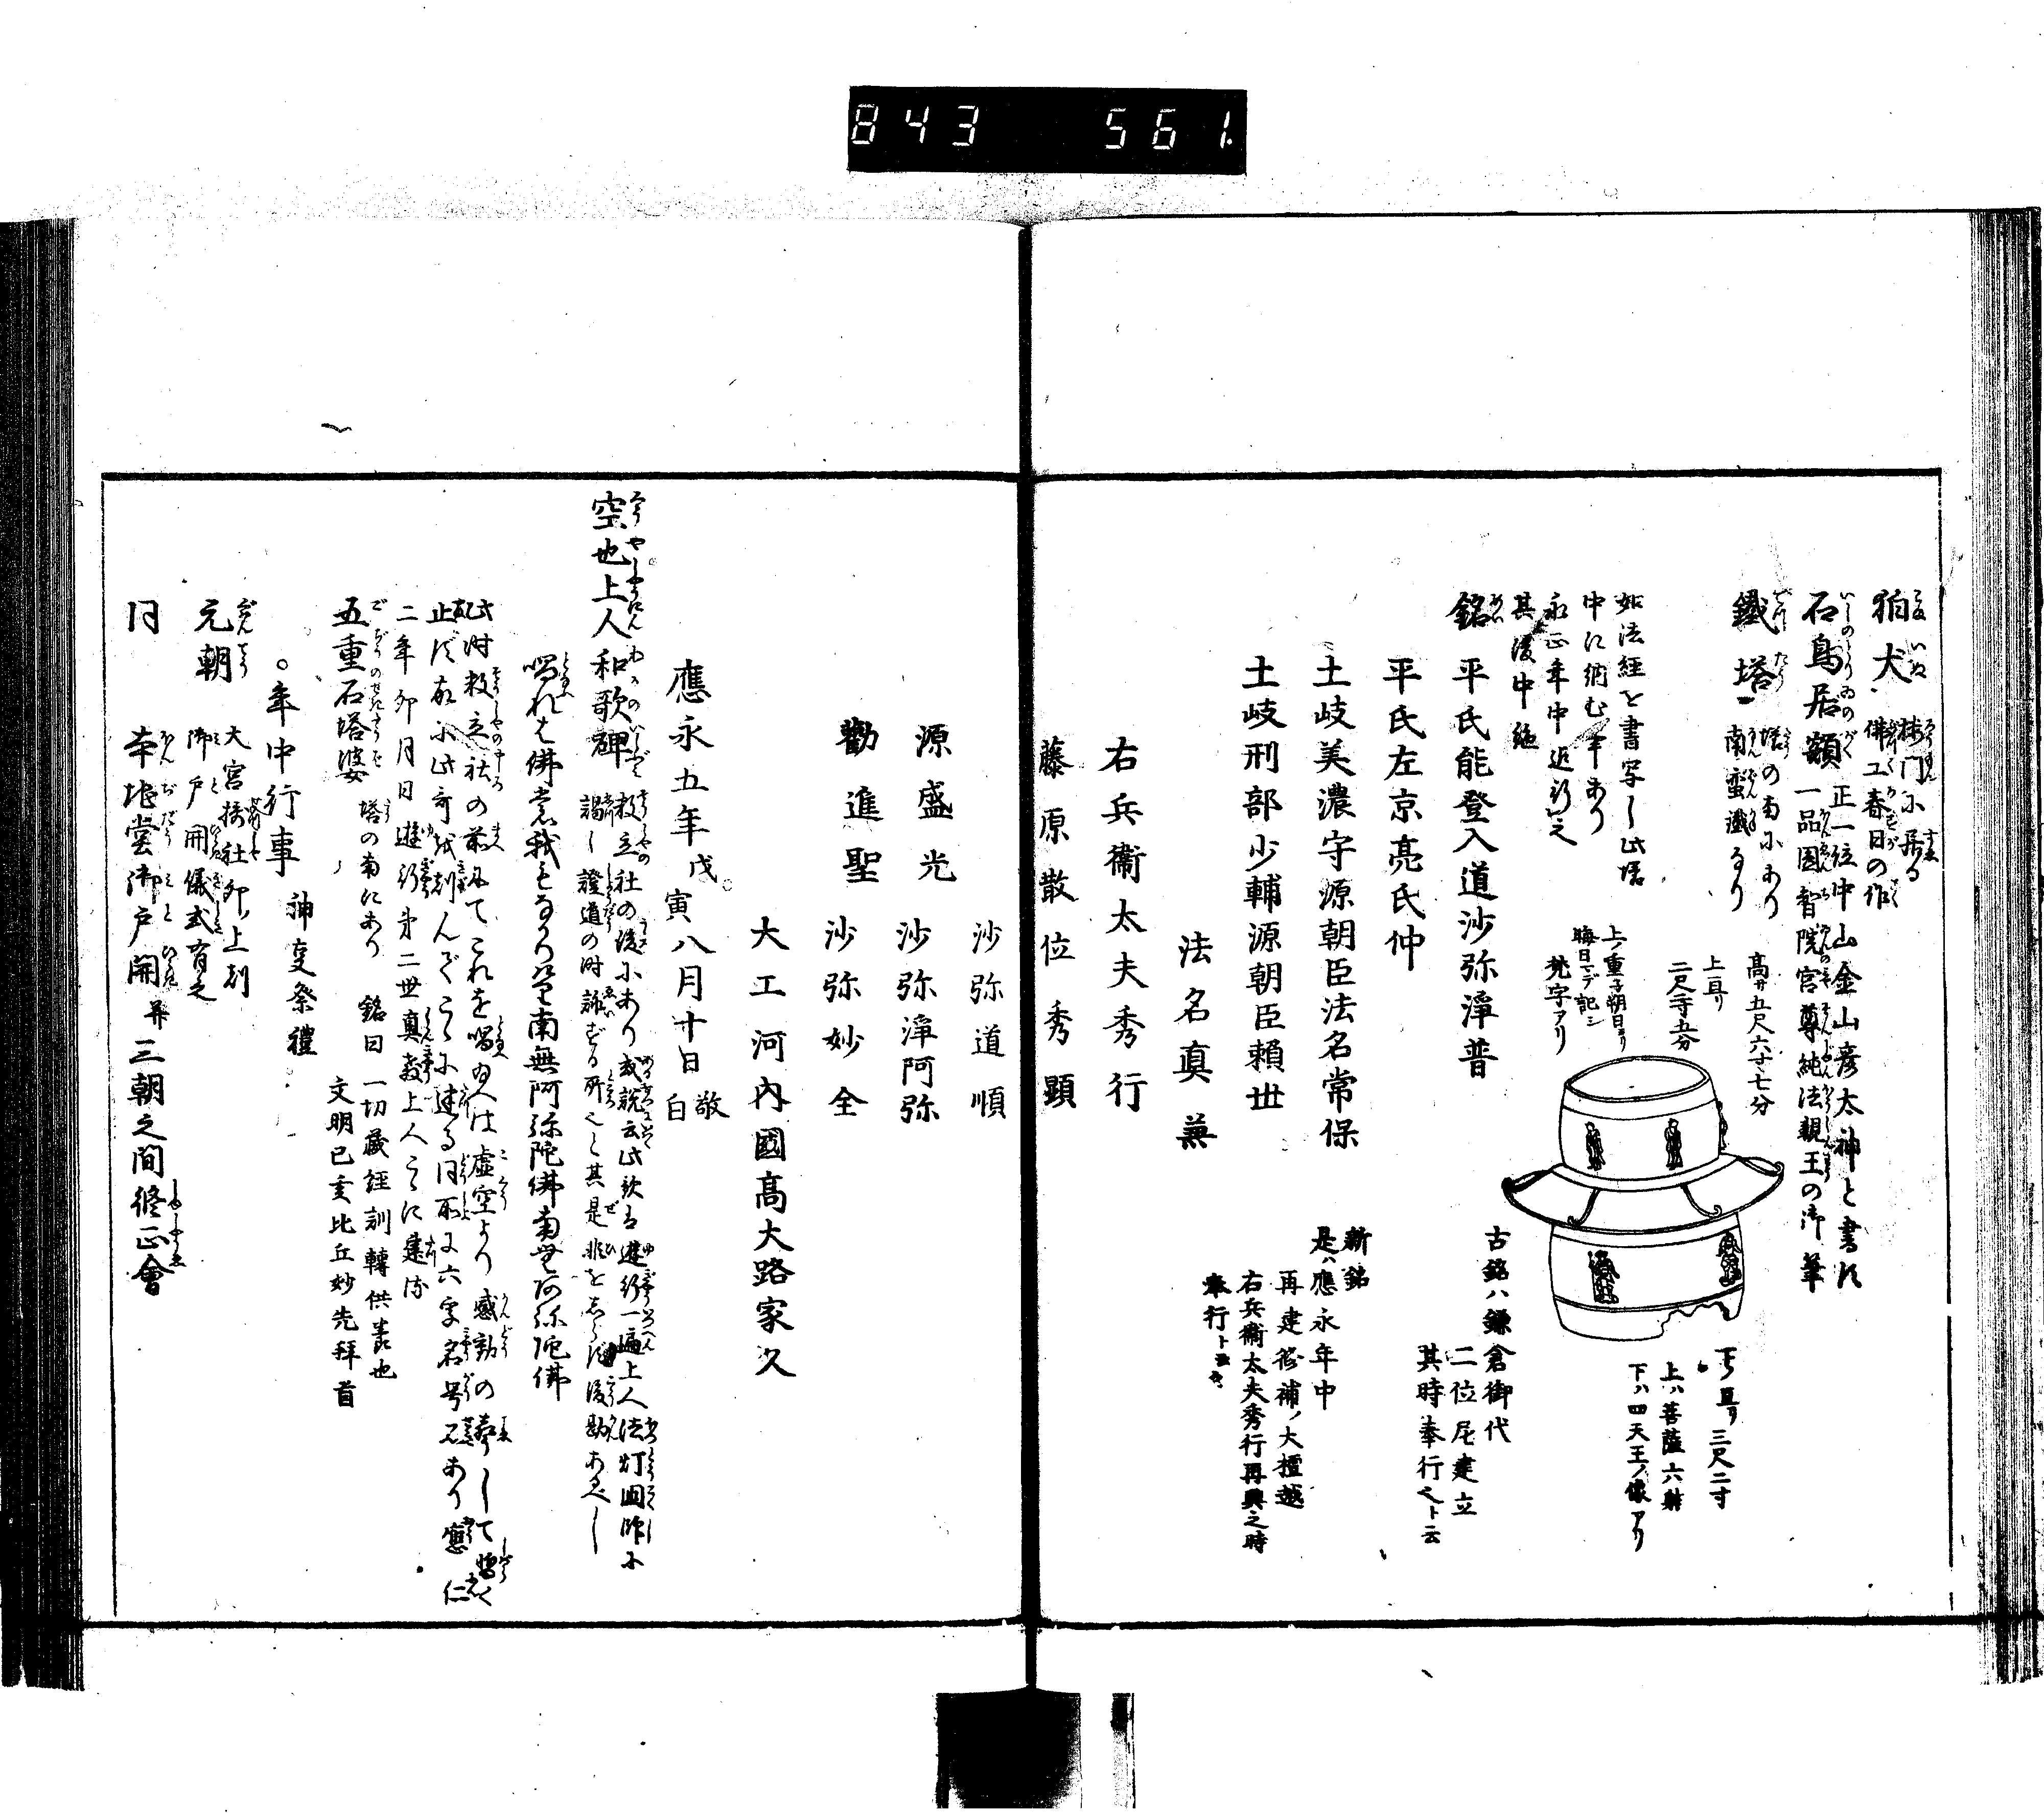 843 561.
狛犬 楼門に居る
佛工春日の作
石鳥居額 正一位中山金山彦太神と書す
一品圓智院宮尊純法親王の御筆
鐵塔 塔の南にあり
南蛮鐵なり
高サ五尺六寸七分
上亘リ
二尺寺五分
如法経を書写し此塔
中に納む事あり
永正年中迄行之
其後中絶
上ノ重ニ朔日ヨリ
晦日マデ記シ
梵字アリ
下亘リ三尺二寸
上ハ菩薩六躰
下ハ四天王ノ像アリ
銘 平氏能登入道沙弥浄普
古銘ハ鎌倉御代
二位尼建立
其時奉行之ト云
平氏左京亮氏仲
土岐美濃守源朝臣法名常保
新銘
是ハ應永年中
再建修補ノ大檀越
土岐刑部少輔源朝臣頼世
右兵衞太夫秀行再興之時
奉行ト云々
法名真兼
右兵衞太夫秀行
藤原散位秀顕
沙弥道順
源盛光 沙弥浄阿弥
勸進聖 沙弥妙全
大工河内國高大路家久
應永五年戊寅八月十日敬白
空也上人和歌碑 数立社の後にあり或説云此歌は遊行一遍上人法灯国師に
謁し證道の時詠ずる所也と其是非をしらず後勘あるべし
唱れば佛も我もなかりけり南無阿弥陀佛南無阿弥陀佛
此时数立社の前にてこれを唱給へは虚空より感動の声して暫く
止ず故に此哥を刻んでこゝに建る同所に六字名号石あり應仁
二年卯月日遊行第二世真教上人こゝに建る
五重石塔婆 塔の南にあり 銘曰 一切蔵経訓轉供養也
文明己亥比丘妙先拜首
○年中行事 神事祭禮
元朝 大宮摂社卯ノ上刻
御戸開儀式有之
同 本地堂御戸開 并三朝之間修正會